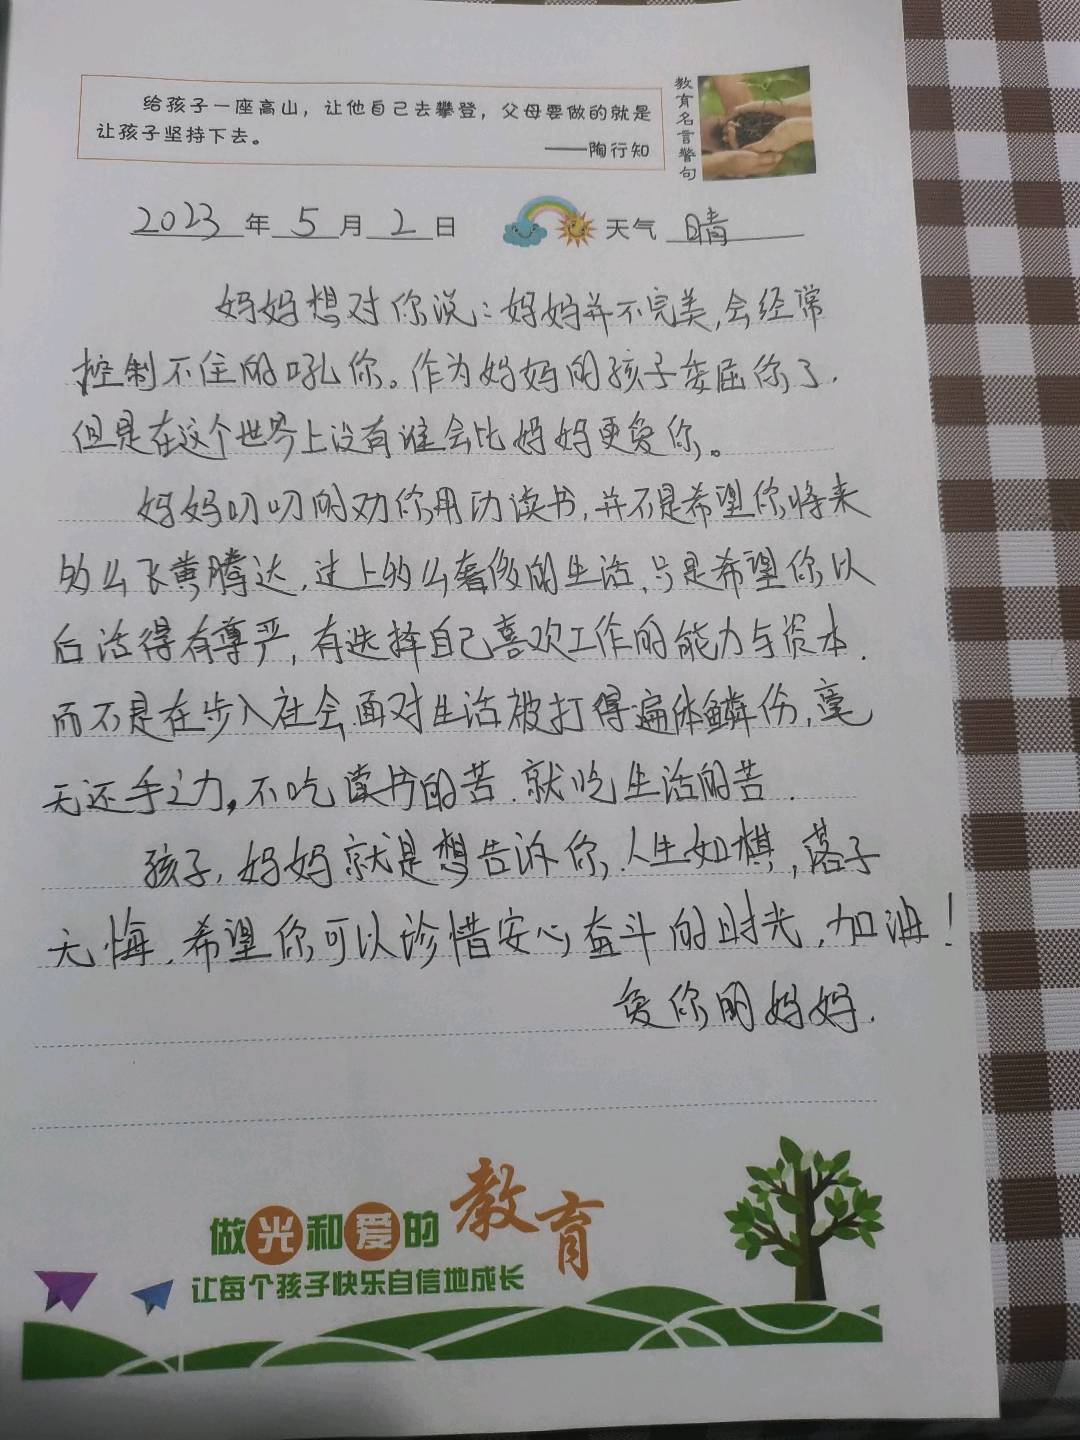 给孩子一座高山，让他自己去攀登，父母要做的就是
让孩子坚持下去。
——陶行知
教育名言警句
2023年5月2日 天气 晴
妈妈想对你说：妈妈并不完美，会经常
控制不住的吼你。作为妈妈的孩子委屈你了.
但是在这个世界上没有谁会比妈妈更爱你。
妈妈叨叨的劝你用功读书，并不是希望你将来
多么飞黄腾达，过上多么奢侈的生活，只是希望你以
后活得有尊严，有选择自己喜欢工作的能力与资本.
而不是在步入社会面对生活被打得遍体鳞伤，毫
无还手之力。不吃读书的苦.就吃生活的苦.
孩子，妈妈就是想告诉你，人生如棋，落子
无悔.希望你可以珍惜安心奋斗的时光，加油！
爱你的妈妈.
做光和爱的教育
让每个孩子快乐自信地成长